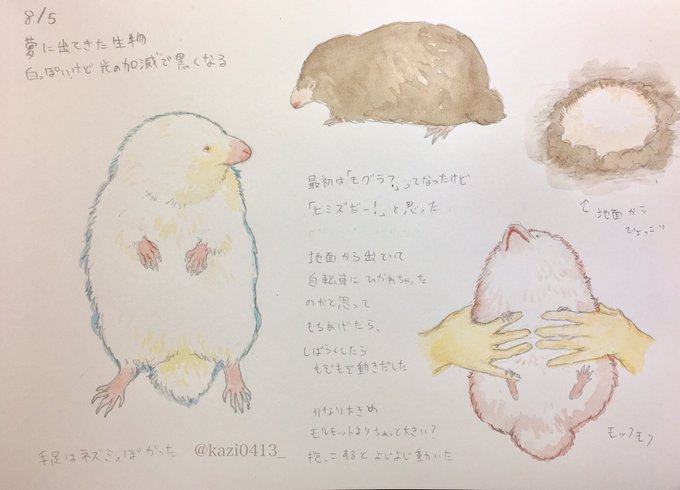 8/5
夢に出てきた生物
白っぽいけど光の加減で黒くなる
最初は「モグラ?」ってなったけど
「ヒミズだー!」と思った
↑地面から
ひょっこり
地面から出ていて
自転車にひかれちゃった
のかと思って
もちあげたら、
しばらくしたら
もぞもぞ動きだした
かなり大きめ
モルモットよりちょっと大きい?
抱っこするとよじよじ動いた
モッフモフ
手足はネズミっぽかった
@kazi0413_